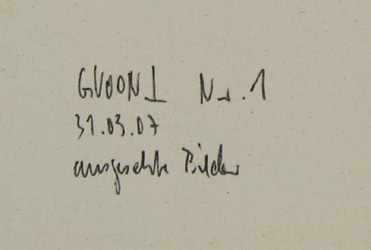 GVOON⊥ Nr. 1
31.03.07
ausgesetzte Bilder